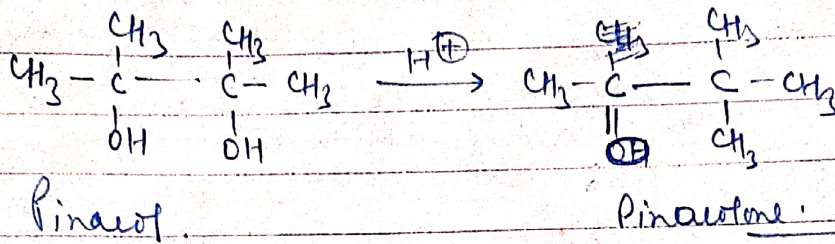 CH3 CH3 CH3 CH3
CH3 – C – C – CH3 H⊕ → CH3 – C – C – CH3
OH OH O CH3
Pinacol. Pinacolone.